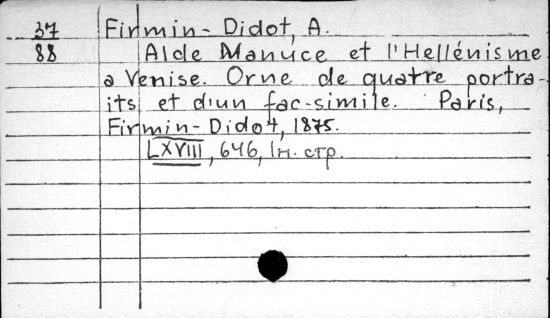 37 Firmin-Didot, A.
88 Alde Manuce et l'Hellénisme
a Venise. Orne de quatre portra-
its et d'un fac-simile. Paris,
Firmin-Didot, 1875.
LXVIII, 646, 1н. стр.